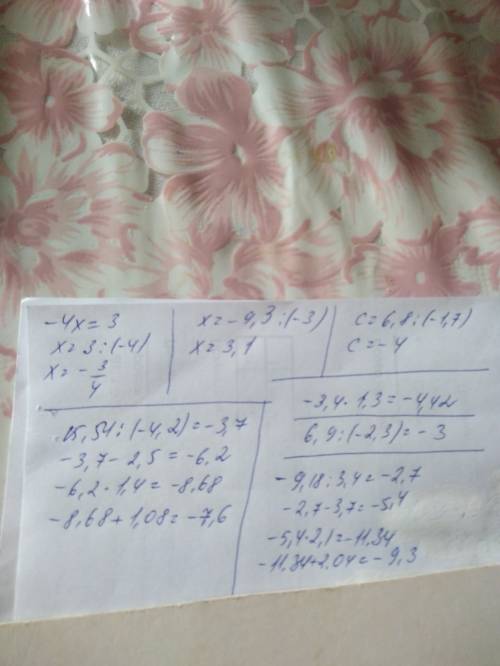 -4x = 3
x = 3 : (-4)
x = - 3/4
x = -9,3 : (-3)
x = 3,1
c = 6,8 : (-1,7)
c = -4
-3,4 · 1,3 = -4,42
6,9 : (-2,3) = -3
15,54 : (-4,2) = -3,7
-3,7 - 2,5 = -6,2
-6,2 · 1,4 = -8,68
-8,68 + 1,08 = -7,6
-9,18 : 3,4 = -2,7
-2,7 - 3,7 = -5,4
-5,4 · 2,1 = -11,34
-11,34 + 2,04 = -9,3